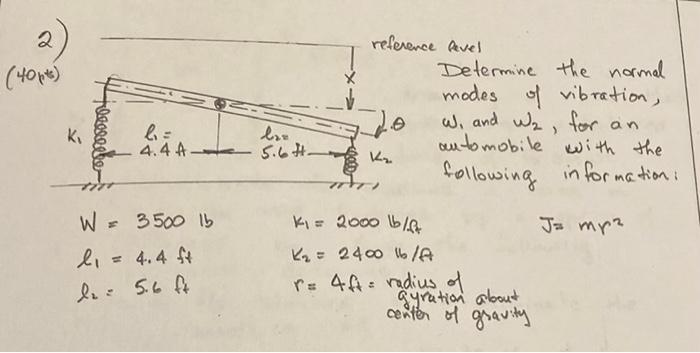 2)
(40 pts)
reference level
Determine the normal
modes of vibration,
ω₁ and ω₂, for an
automobile with the
following information:
x
θ
K₁
l₁ =
4.4 ft
l₂ =
5.6 ft
K₂
W = 3500 lb
K₁ = 2000 lb/ft
J = mr²
l₁ = 4.4 ft
K₂ = 2400 lb/ft
l₂ = 5.6 ft
r = 4 ft = radius of
gyration about
center of gravity